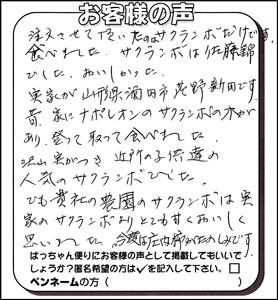 お客様の声
注文させて頂いたのはサクランボだけです。
食べれた。サクランボは佐藤錦
でした。おいしかった。
実家が山形県酒田市 荒野新田です。
昔、家にナポレオンのサクランボの木が
あり、登って取って食べれた。
沢山実がつき 近所の子供達の
人気のサクランボでした。
でも貴社の農園のサクランボは実
家のサクランボよりとても甘くおいしく
思いれた。今後は庄内柿がたのしみです。
ばっちゃん便りにお客様の声として掲載してもいいで
しょうか?匿名希望の方は✓を記入して下さい。□
ペンネームの方( )